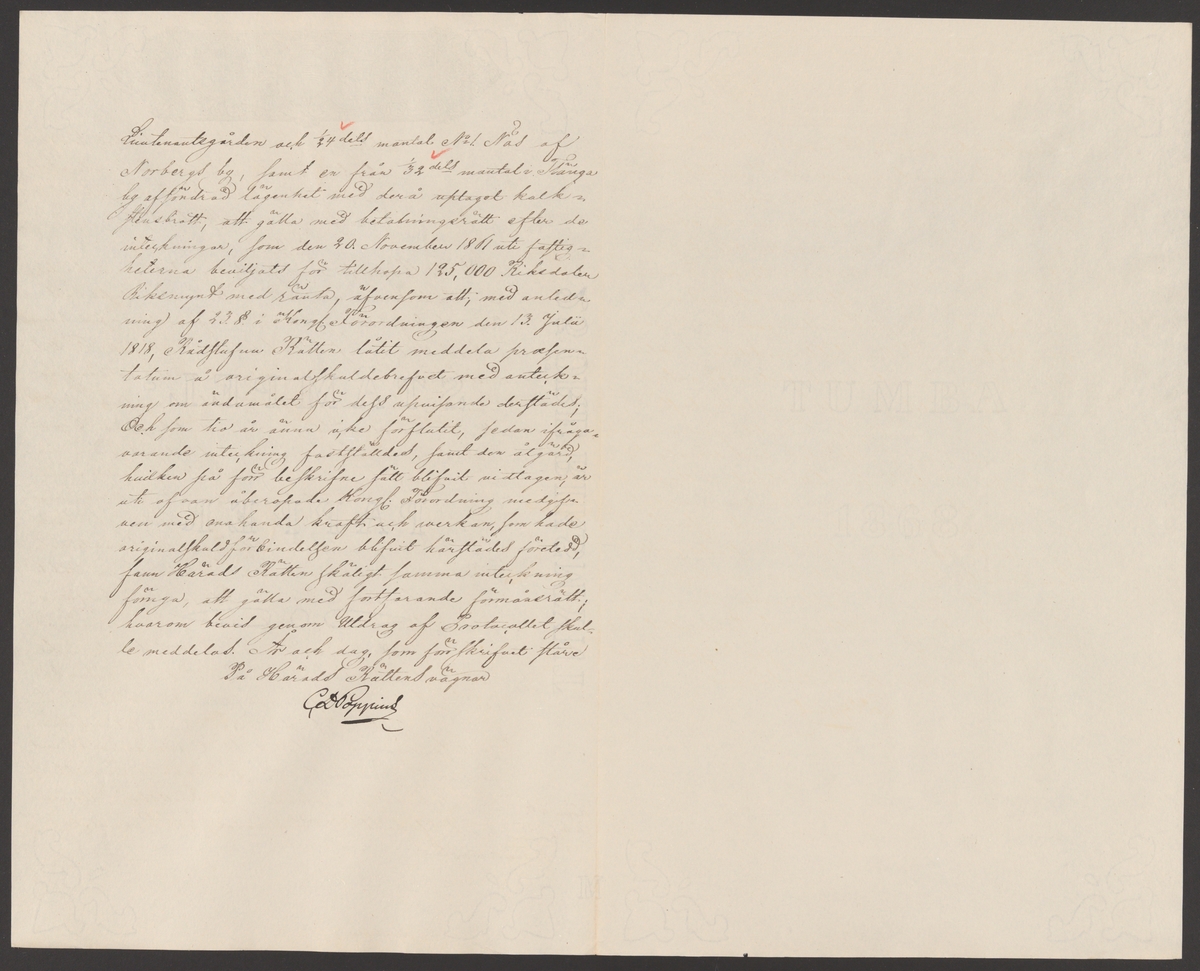 Lieutenantsgården och 1/24 dels mantal No 1. Näs af
Norbergs by, samt en från 1/32 dels mantal i Tränga
by afsöndrad lägenhet med derå uptaget kalk-
stensbrott, att gälla med betalningsrätt efter de
inteckningar, som den 20. November 1861 uti fastig-
heterna beviljats för tillhopa 125,000 Riksdaler
Riksmynt med ränta, äfvensom att, med anled-
ning af 23. §. i Kongl. Förordningen den 13. Julii
1818, Rådstufvu Rätten låtit meddela præsen-
tatum å originalskuldebrefvet med anteck-
ning om ändamålet för dess upvisande derstädes;
Och som tio år ännu icke förflutit, sedan ifråga-
varande inteckning fastställdes, samt den åtgärd,
hvilken på förr beskrifne sätt blifvit vidtagen, är
uti ofvan åberopade Kongl. Förordning medgif-
ven med enahanda kraft och verkan, som hade
originalskuldförbindelsen blifvit härstädes företedd,
fann Härads Rätten skäligt samma inteckning
förnya, att gälla med fortfarande förmånsrätt;
hvarom bevis genom Utdrag af Protocollet skul-
le meddelas. År och dag, som förr skrifvet står
På Härads Rättens vägnar
Poppius